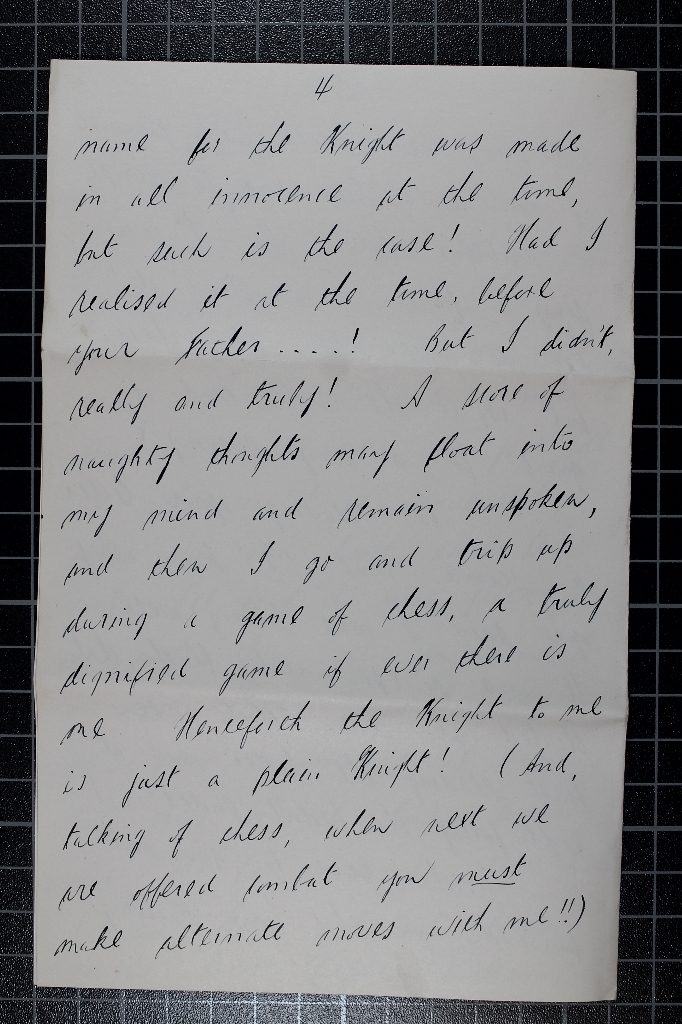 4
name for the Knight was made
in all innocence at the time,
but such is the case! Had I
realised it at the time, before
your Father ....! But I didn't,
really and truly! A store of
naughty thoughts may float into
my mind and remain unspoken,
and then I go and trip up
during a game of chess, a truly
dignified game if ever there is
one Henceforth the Knight to me
is just a plain Knight! (And,
talking of chess, when next we
are offered combat you must
make alternate moves with me!!)